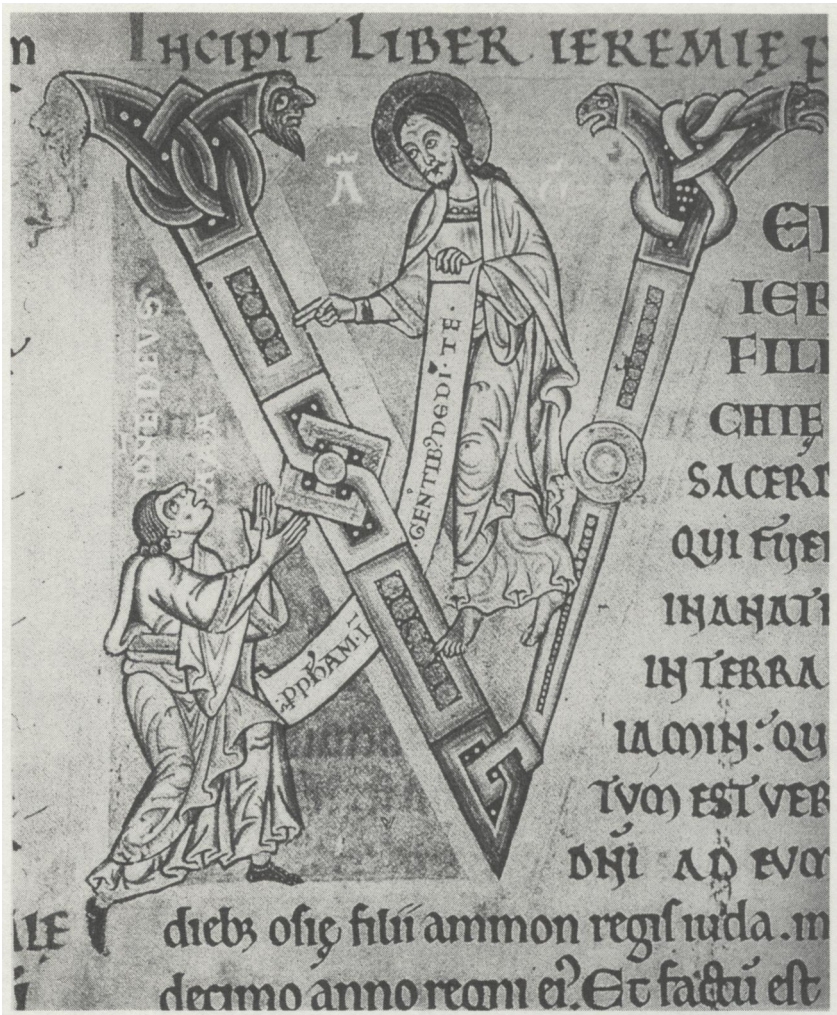 INCIPIT LIBER IEREMIĘ
A
DNE DEVS
AAA
PPHAM·I
GENTIB; DEDI·TE·
IER
FILI
CHIĘ
SACERD
QUI FUER
INANATH
IN TERRA
IAMIN: QU
TUM EST VER
DÑI AD EUM
dieb; osię filii ammon regis iuda. in
decimo anno regni ei? Et factū est